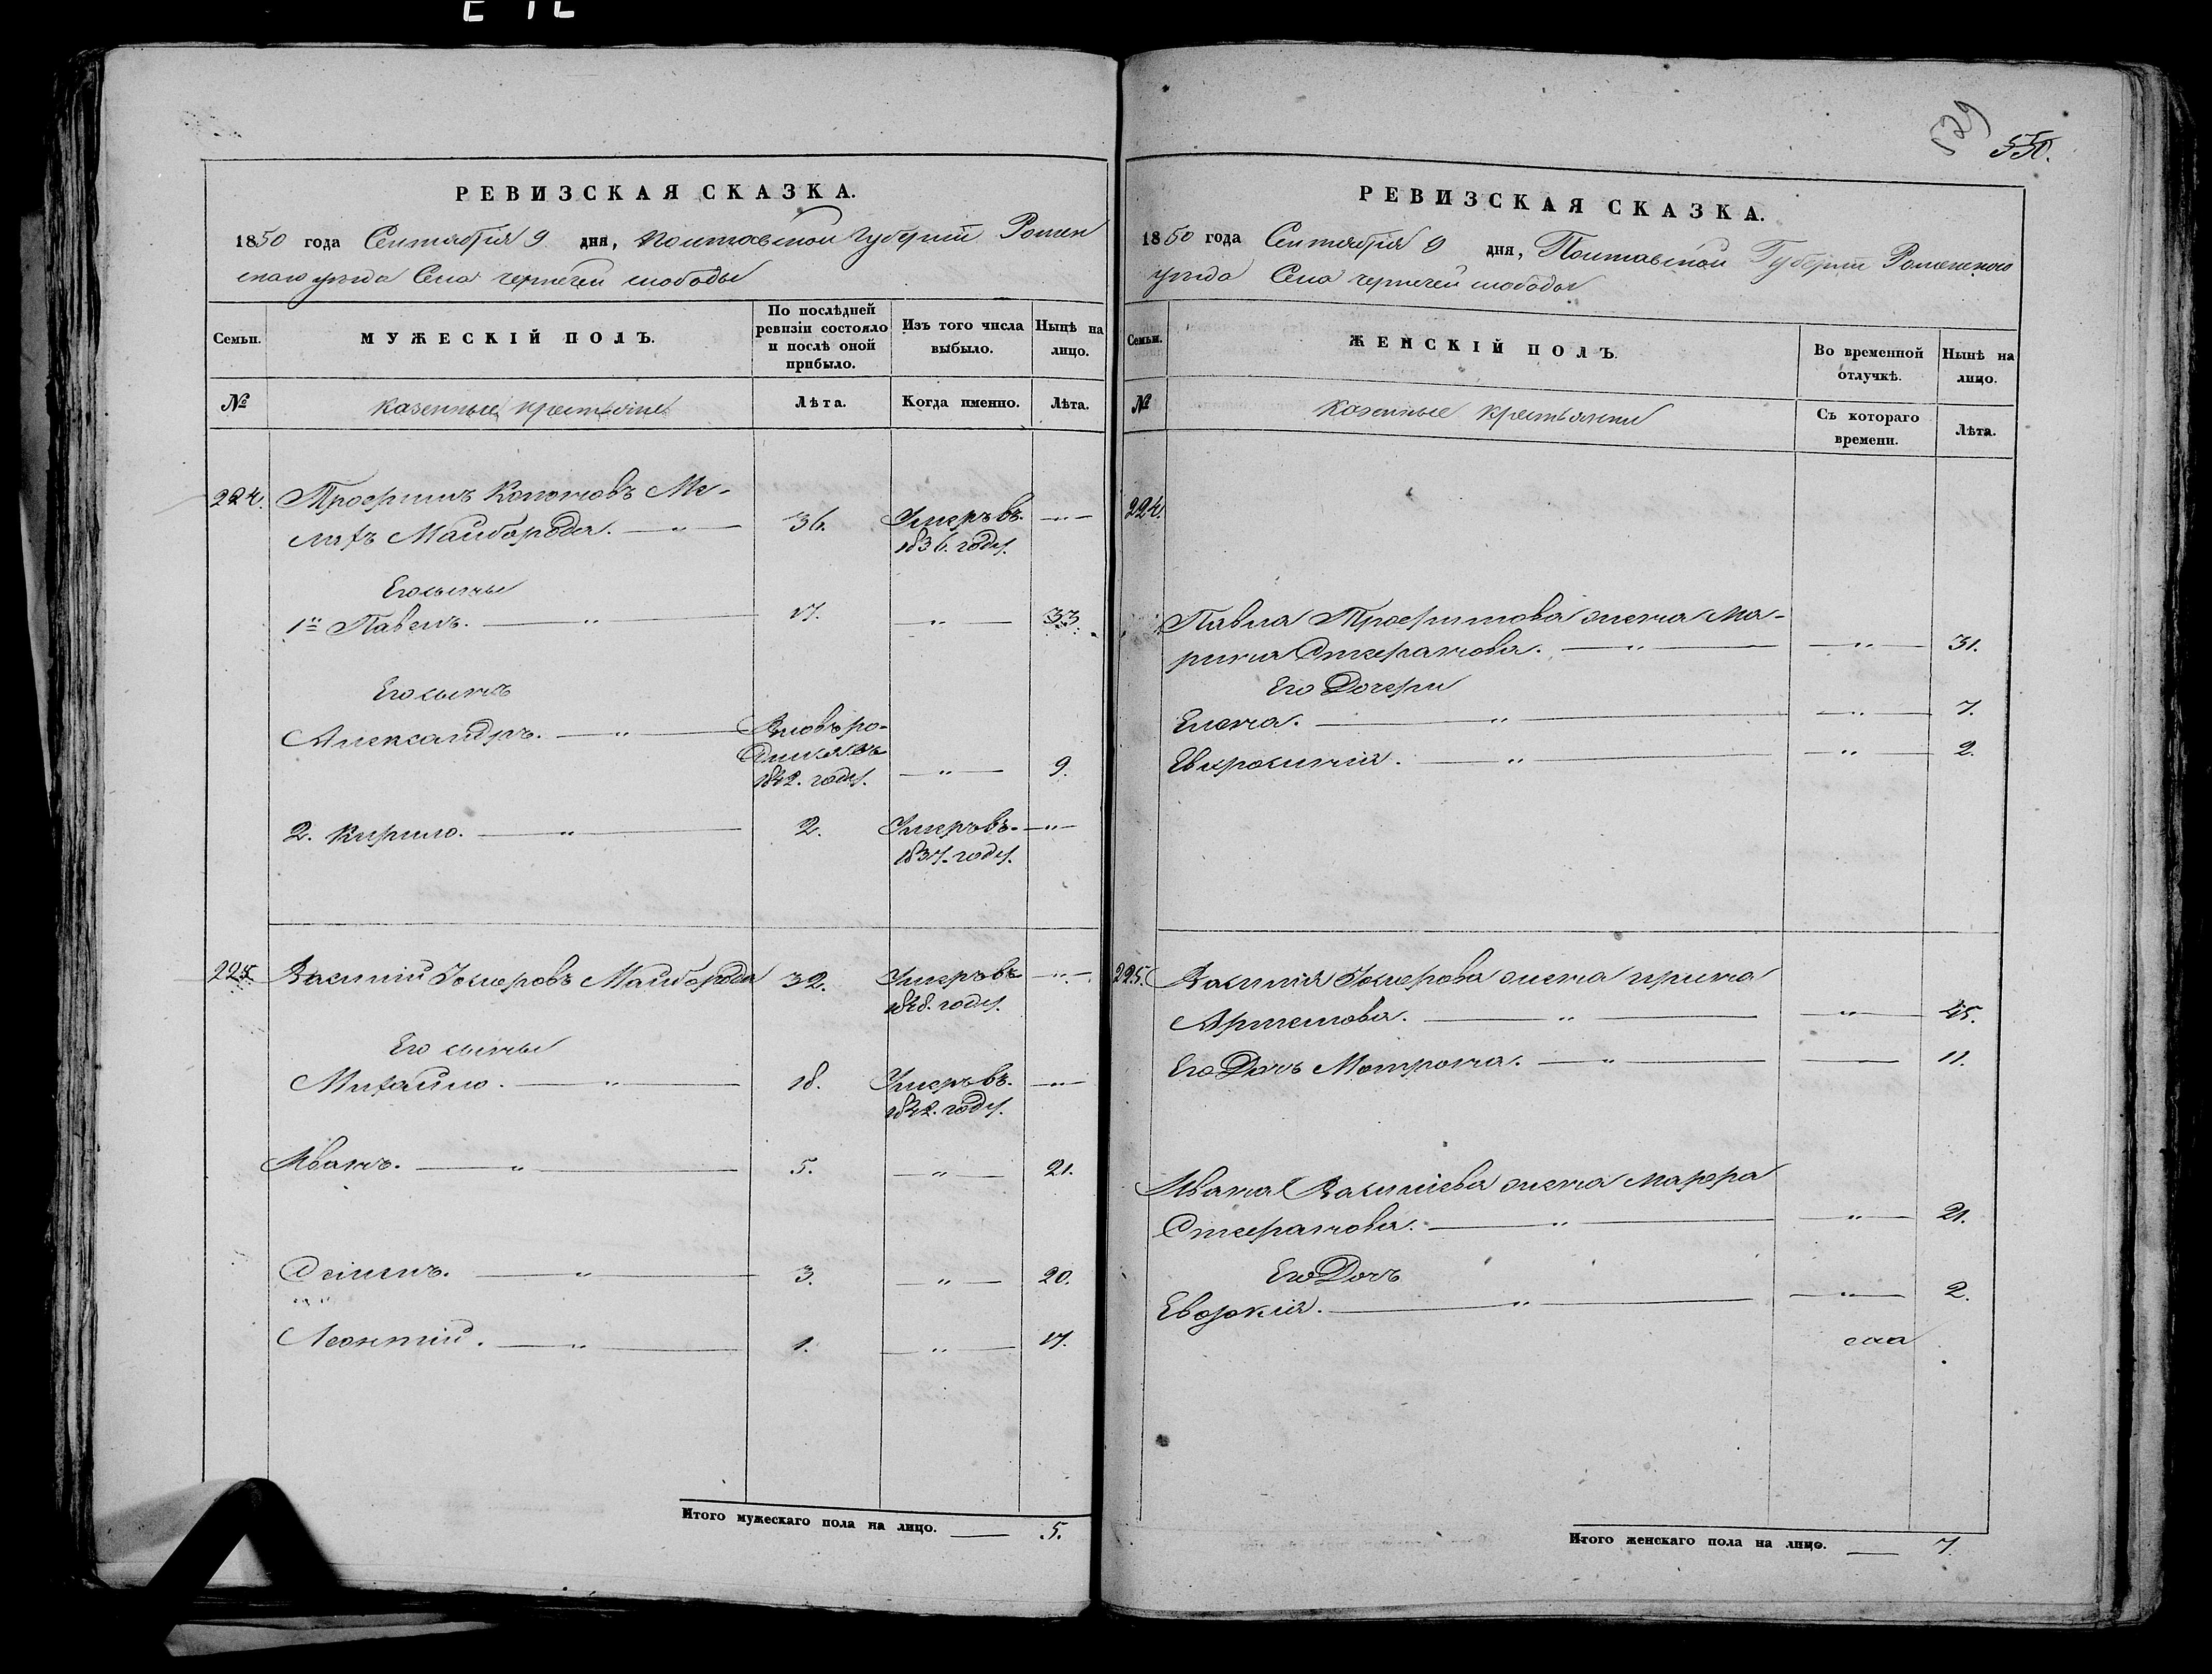 550.
РЕВИЗСКАЯ СКАЗКА.
1850 года Сентября 9 дня, Полтавской Губерніи Ромен
скаго уѣзда Села Чернечей слободы
Семьи.
МУЖЕСКІЙ ПОЛЪ.
По послѣдней ревизіи состояло и послѣ оной прибыло.
Изъ того числа выбыло.
Нынѣ на лицо.
№
казенные крестьяне
Лѣта.
Когда именно.
Лѣта.
224. Трофимъ Кононовъ Ме-
лихъ Майборода. — " — 36. Умеръ въ — " —
1836. году.
Его сыны
1й Павелъ. — " — 17. — " — 33.
Его сынъ
Александръ. — " — Вновь ро-
дился въ
1842. году. — " — 9.
2. Кирило. — " — 2. Умеръ въ — " —
1837. году.
225. Василий Майборода 32. Умеръ въ — " —
1848. году.
Его сыны
Михайло. — " — 18. Умеръ въ — " —
1842. году.
Иванъ. — " — 5. — " — 21.
3. — " — 20.
Леонтій. — " — 1. — " — 17.
Итого мужескаго пола на лицо. — 5.
РЕВИЗСКАЯ СКАЗКА.
1850 года Сентября 9 дня, Полтавской Губерніи Роменского
уѣзда Села Чернечей слободы
Семьи.
ЖЕНСКІЙ ПОЛЪ.
Во временной отлучкѣ.
Нынѣ на лицо.
№
казенные крестьянки
Съ котораго времени.
Лѣта.
224.
Павла Трофимова жена Ма-
рина Стефанова. — " — — " — 31.
Его Дочери
Елена. — " — — " — 7.
Евфросинія. — " — — " — 2.
225. Василия жена Ирина
Артемова. — " — — " — 45.
Его Дочь Матрона. — " — — 11.
Ивана Василиева жена Марфа
Стефанова. — " — — " — 21.
Его Дочь
Евдокія. — " — — " — 2.
Итого женскаго пола на лицо. — 7.